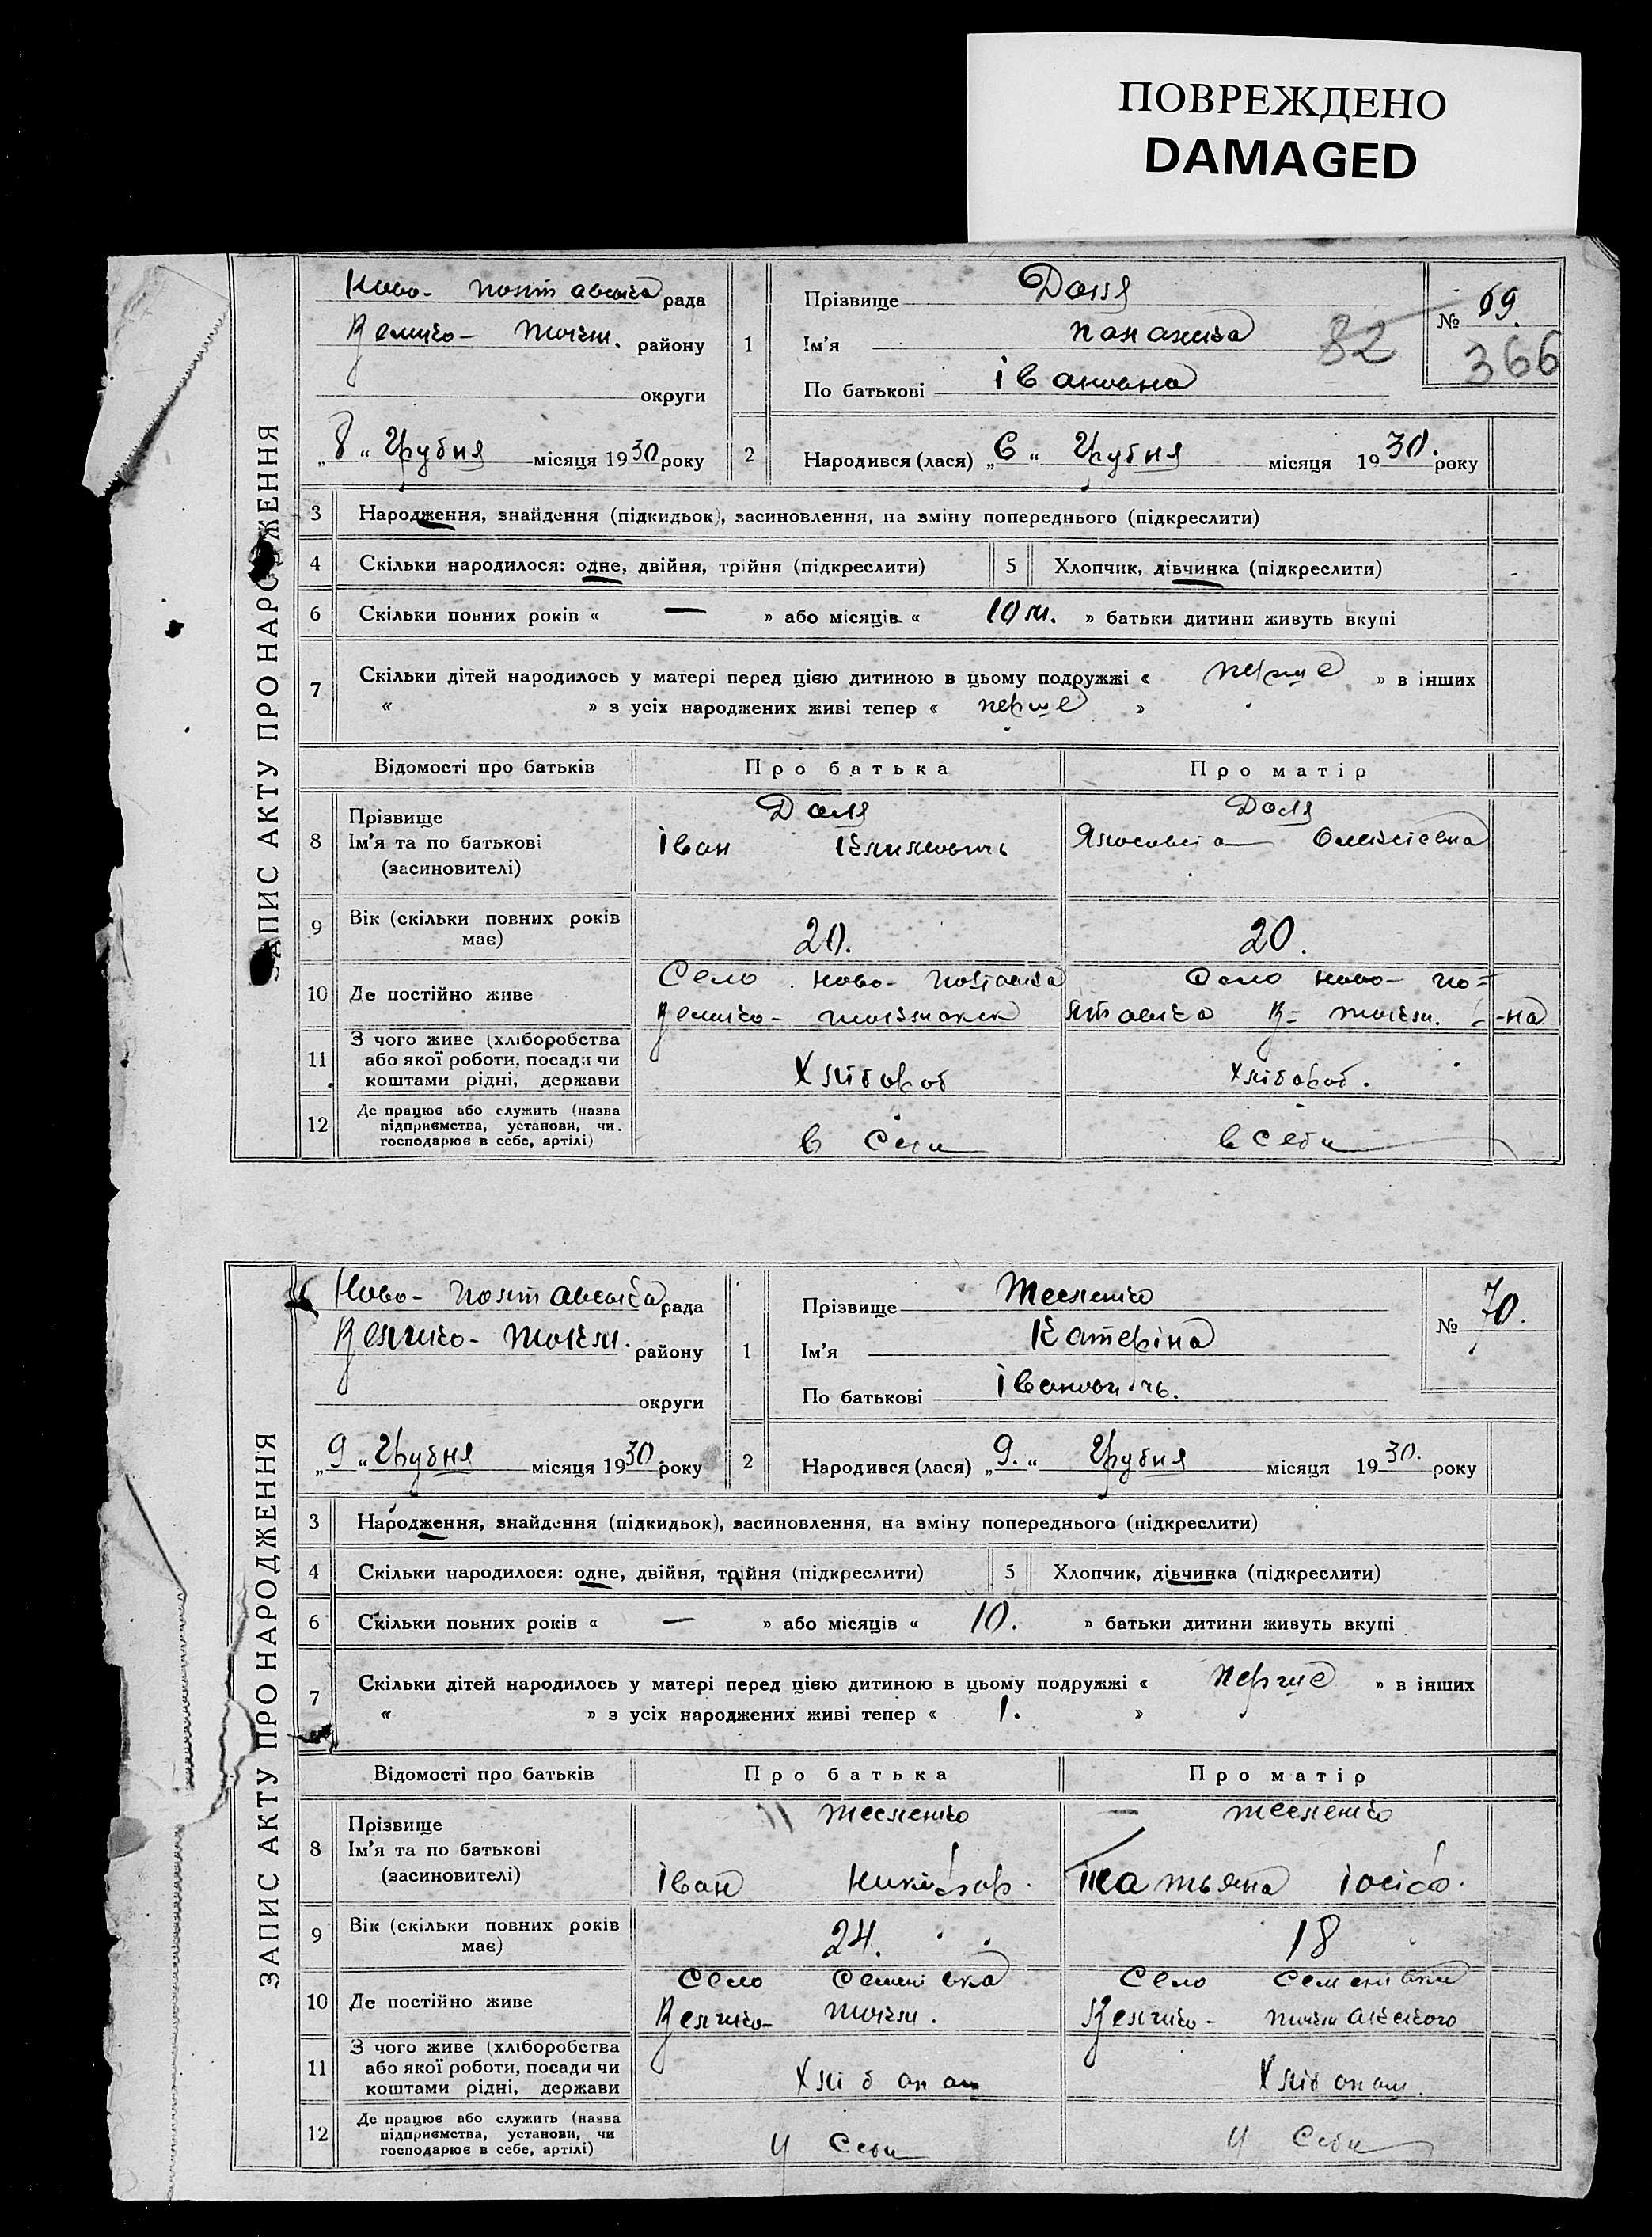 ПОВРЕЖДЕНО
DAMAGED
ЗАПИС АКТУ ПРО НАРОДЖЕННЯ
Ново- Полтавська рада
Велико- Токм. району
округи
„8“ Грудня місяця 1930 року
1
Прізвище Доля
Ім'я
По батькові Івановна
82
№ 69.
366
2 Народився (лася) „6“ Грудня місяця 1930. року
3 Народження, знайдення (підкидьок), засиновлення, на зміну попереднього (підкреслити)
4 Скільки народилося: одне, двійня, трійня (підкреслити) 5 Хлопчик, дівчинка (підкреслити)
6 Скільки повних років « — » або місяців « 10 м. » батьки дитини живуть вкупі
7 Скільки дітей народилось у матері перед цією дитиною в цьому подружжі « перше » в інших
« » з усіх народжених живі тепер « перше »
Відомості про батьків Про батька Про матір
8 Прізвище
Ім'я та по батькові
(засиновителі)
Доля
Іван Климович
Доля
Олексіевна
9 Вік (скільки повних років має)
20. 20.
10 Де постійно живе
Село Ново- Полтавка
Велико- Токмакск
Село Ново- По=
лтавка В= Токм. -на
11 З чого живе (хліборобства або якої роботи, посади чи коштами рідні, держави
Хлібороб Хлібороб.
12 Де працює або служить (назва підприємства, установи, чи. господарює в себе, артілі)
в себи в себи
ЗАПИС АКТУ ПРО НАРОДЖЕННЯ
Ново- Полтавська рада
Велико- Токм. району
округи
„9“ Грудня місяця 1930 року
1
Прізвище Тесленко
Ім'я Катеріна
По батькові Івановичь.
№ 70.
2 Народився (лася) „9.“ Грудня місяця 1930. року
3 Народження, знайдення (підкидьок), засиновлення, на зміну попереднього (підкреслити)
4 Скільки народилося: одне, двійня, трійня (підкреслити) 5 Хлопчик, дівчинка (підкреслити)
6 Скільки повних років « — » або місяців « 10. » батьки дитини живуть вкупі
7 Скільки дітей народилось у матері перед цією дитиною в цьому подружжі « перше » в інших
« » з усіх народжених живі тепер « 1. »
Відомості про батьків Про батька Про матір
8 Прізвище
Ім'я та по батькові
(засиновителі)
Тесленко
Іван Никіфор.
Тесленко
Татьяна Іосіф.
9 Вік (скільки повних років має)
24. 18
10 Де постійно живе
Село Семенівка
Велико- Токм.
Село Семенівка
Велико- Токмакского
11 З чого живе (хліборобства або якої роботи, посади чи коштами рідні, держави
Хлібопаш Хлібопаш.
12 Де працює або служить (назва підприємства, установи, чи господарює в себе, артілі)
у себи у себи